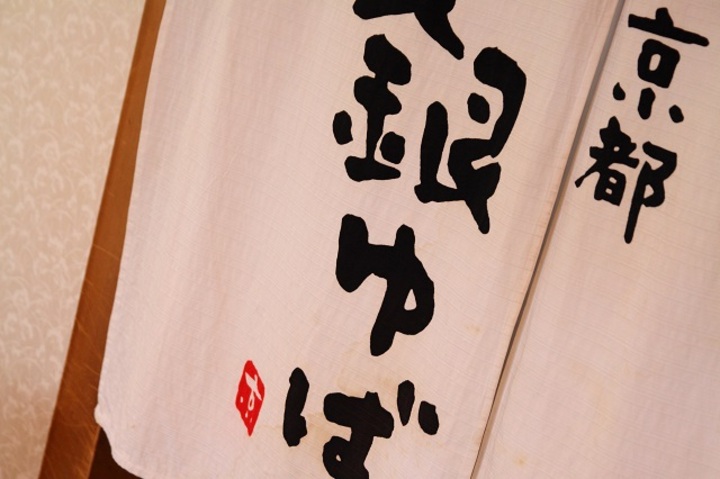 京都
銀ゆば